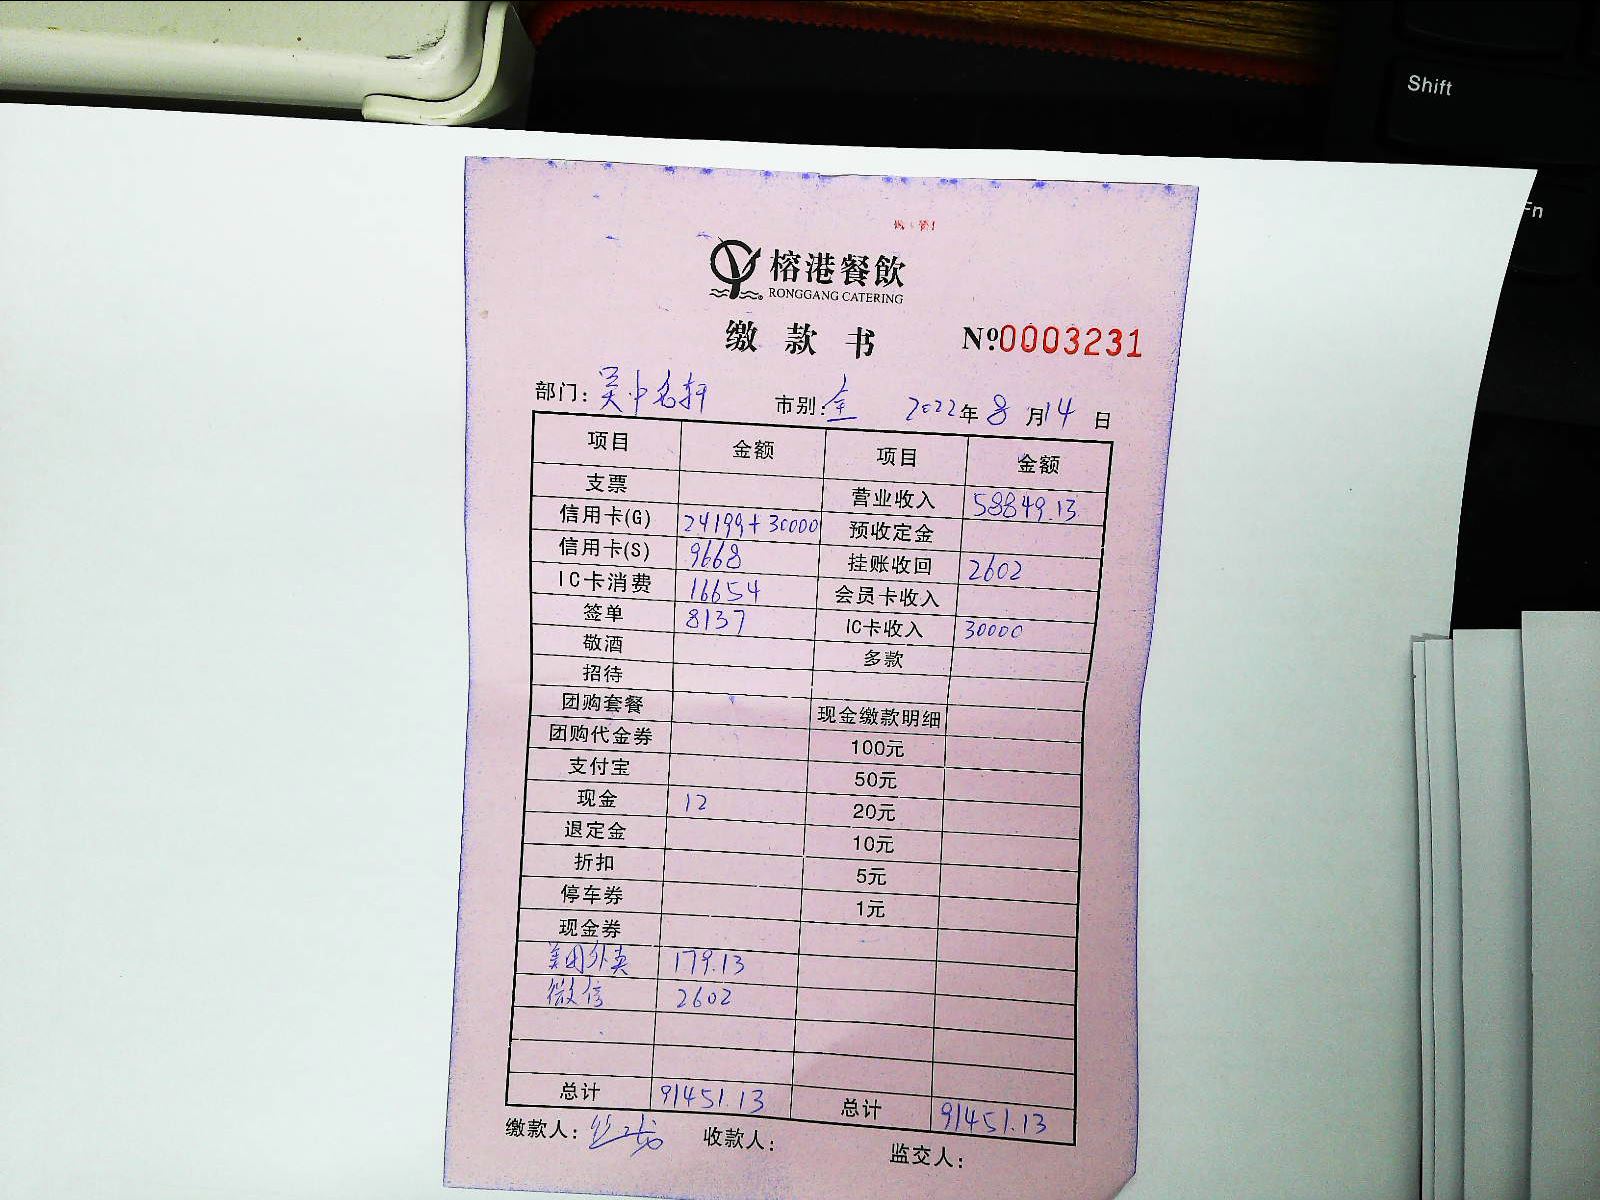 Shift
Fn
榕港餐飲
RONGGANG CATERING
缴款书 №0003231
部门: 吴中名轩 市别: 全 2022年8月14日
项目 金额 项目 金额
支票 营业收入 58849.13
信用卡(G) 24199+30000 预收定金
信用卡(S) 9668 挂账收回 2602
IC卡消费 16654 会员卡收入
签单 8137 IC卡收入 30000
敬酒 多款
招待
团购套餐 现金缴款明细
团购代金券 100元
支付宝 50元
现金 12 20元
退定金 10元
折扣 5元
停车券 1元
现金券
美团外卖 179.13
微信 2602
总计 91451.13 总计 91451.13
缴款人: 收款人: 监交人: